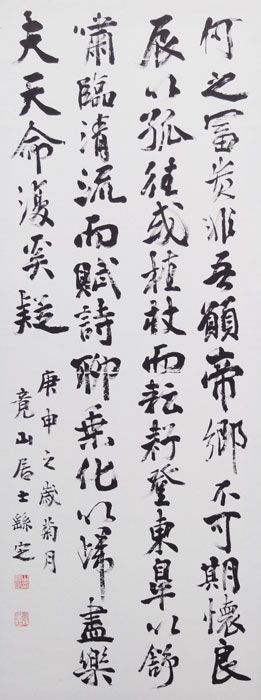 何之冨貴非吾願帝鄉不可期懷良
辰以孤往或植杖而耘耔登東皐以舒
嘯臨清流而賦詩聊乗化以歸盡樂
夫天命復奚疑
庚申之歳菊月
竟山居士繇定